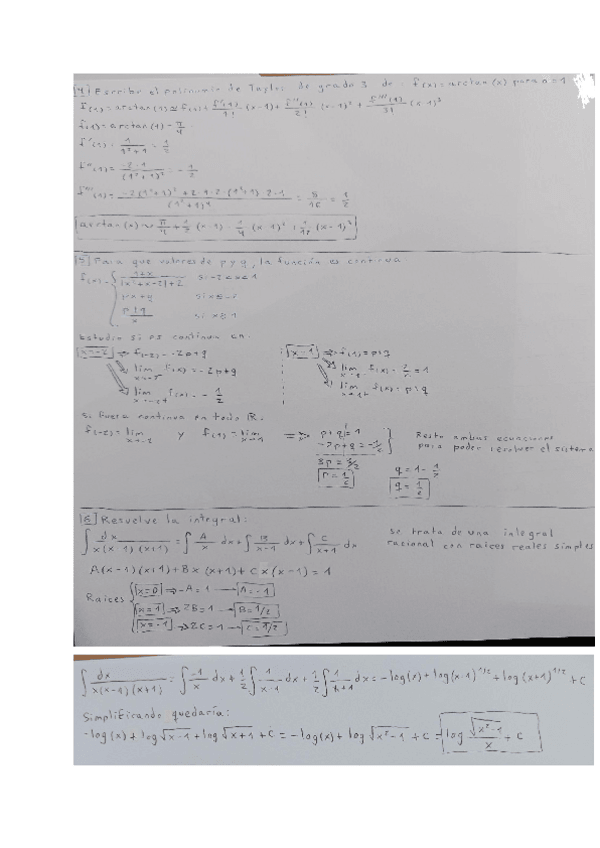 4) Escribir el polinomio de Taylor de grado 3 de: f(x)=arctan(x) para a=1
f(x)=arctan(1)≈f(x)+ f'(1)/1! (x-1)+ f''(1)/2! (x-1)²+ f'''(1)/3! (x-1)³
f(1)=arctan(1)=π/4
f'(1)= 1/(1²+1) = 1/2
f''(1)= -2·1/(1²+1)² = -1/2
f'''(1)= (-2(1²+1)²+2·1·2·(1²+1)·2·1)/(1²+1)⁴ = 8/16 = 1/2
arctan(x)≈ π/4 + 1/2 (x-1) - 1/4 (x-1)² + 1/12 (x-1)³
5) Para que valores de p y q, la función es continua
f(x)=
px+q
Estudio si es continua en:
x=-2 ⇒ f(-2)=-2p+q
x=1 ⇒ f(1)=p+q
lim f(x)=-2p+q
lim f(x)= 2/2 =1
lim f(x)= -1/2
lim f(x)=p+q
si fuera continua en todo ℝ:
f(-2)=lim x→-2 y f(1)=lim x→1 ⇒ p+q=1
-2p+q=-1/2
Resto ambas ecuaciones
para poder resolver el sistema
3p=3/2
p=1/2
q=1-1/2
q=1/2
6) Resuelve la integral:
∫ dx/(x(x-1)(x+1)) = ∫ A/x dx + ∫ B/(x-1) dx + ∫ C/(x+1) dx
Se trata de una integral
racional con raíces reales simples
A(x-1)(x+1)+Bx(x+1)+Cx(x-1)=1
Raíces
x=0 ⇒ -A=1 → A=-1
x=1 ⇒ 2B=1 → B=1/2
x=-1 ⇒ 2C=1 → C=1/2
∫ dx/(x(x-1)(x+1)) = ∫ -1/x dx + 1/2 ∫ 1/(x-1) dx + 1/2 ∫ 1/(x+1) dx = -log(x)+log(x-1)^1/2+log(x+1)^1/2+C
Simplificando quedaría:
-log(x)+log√x-1+log√x+1+C = -log(x)+log√x²-1+C = log √x²-1/x + C